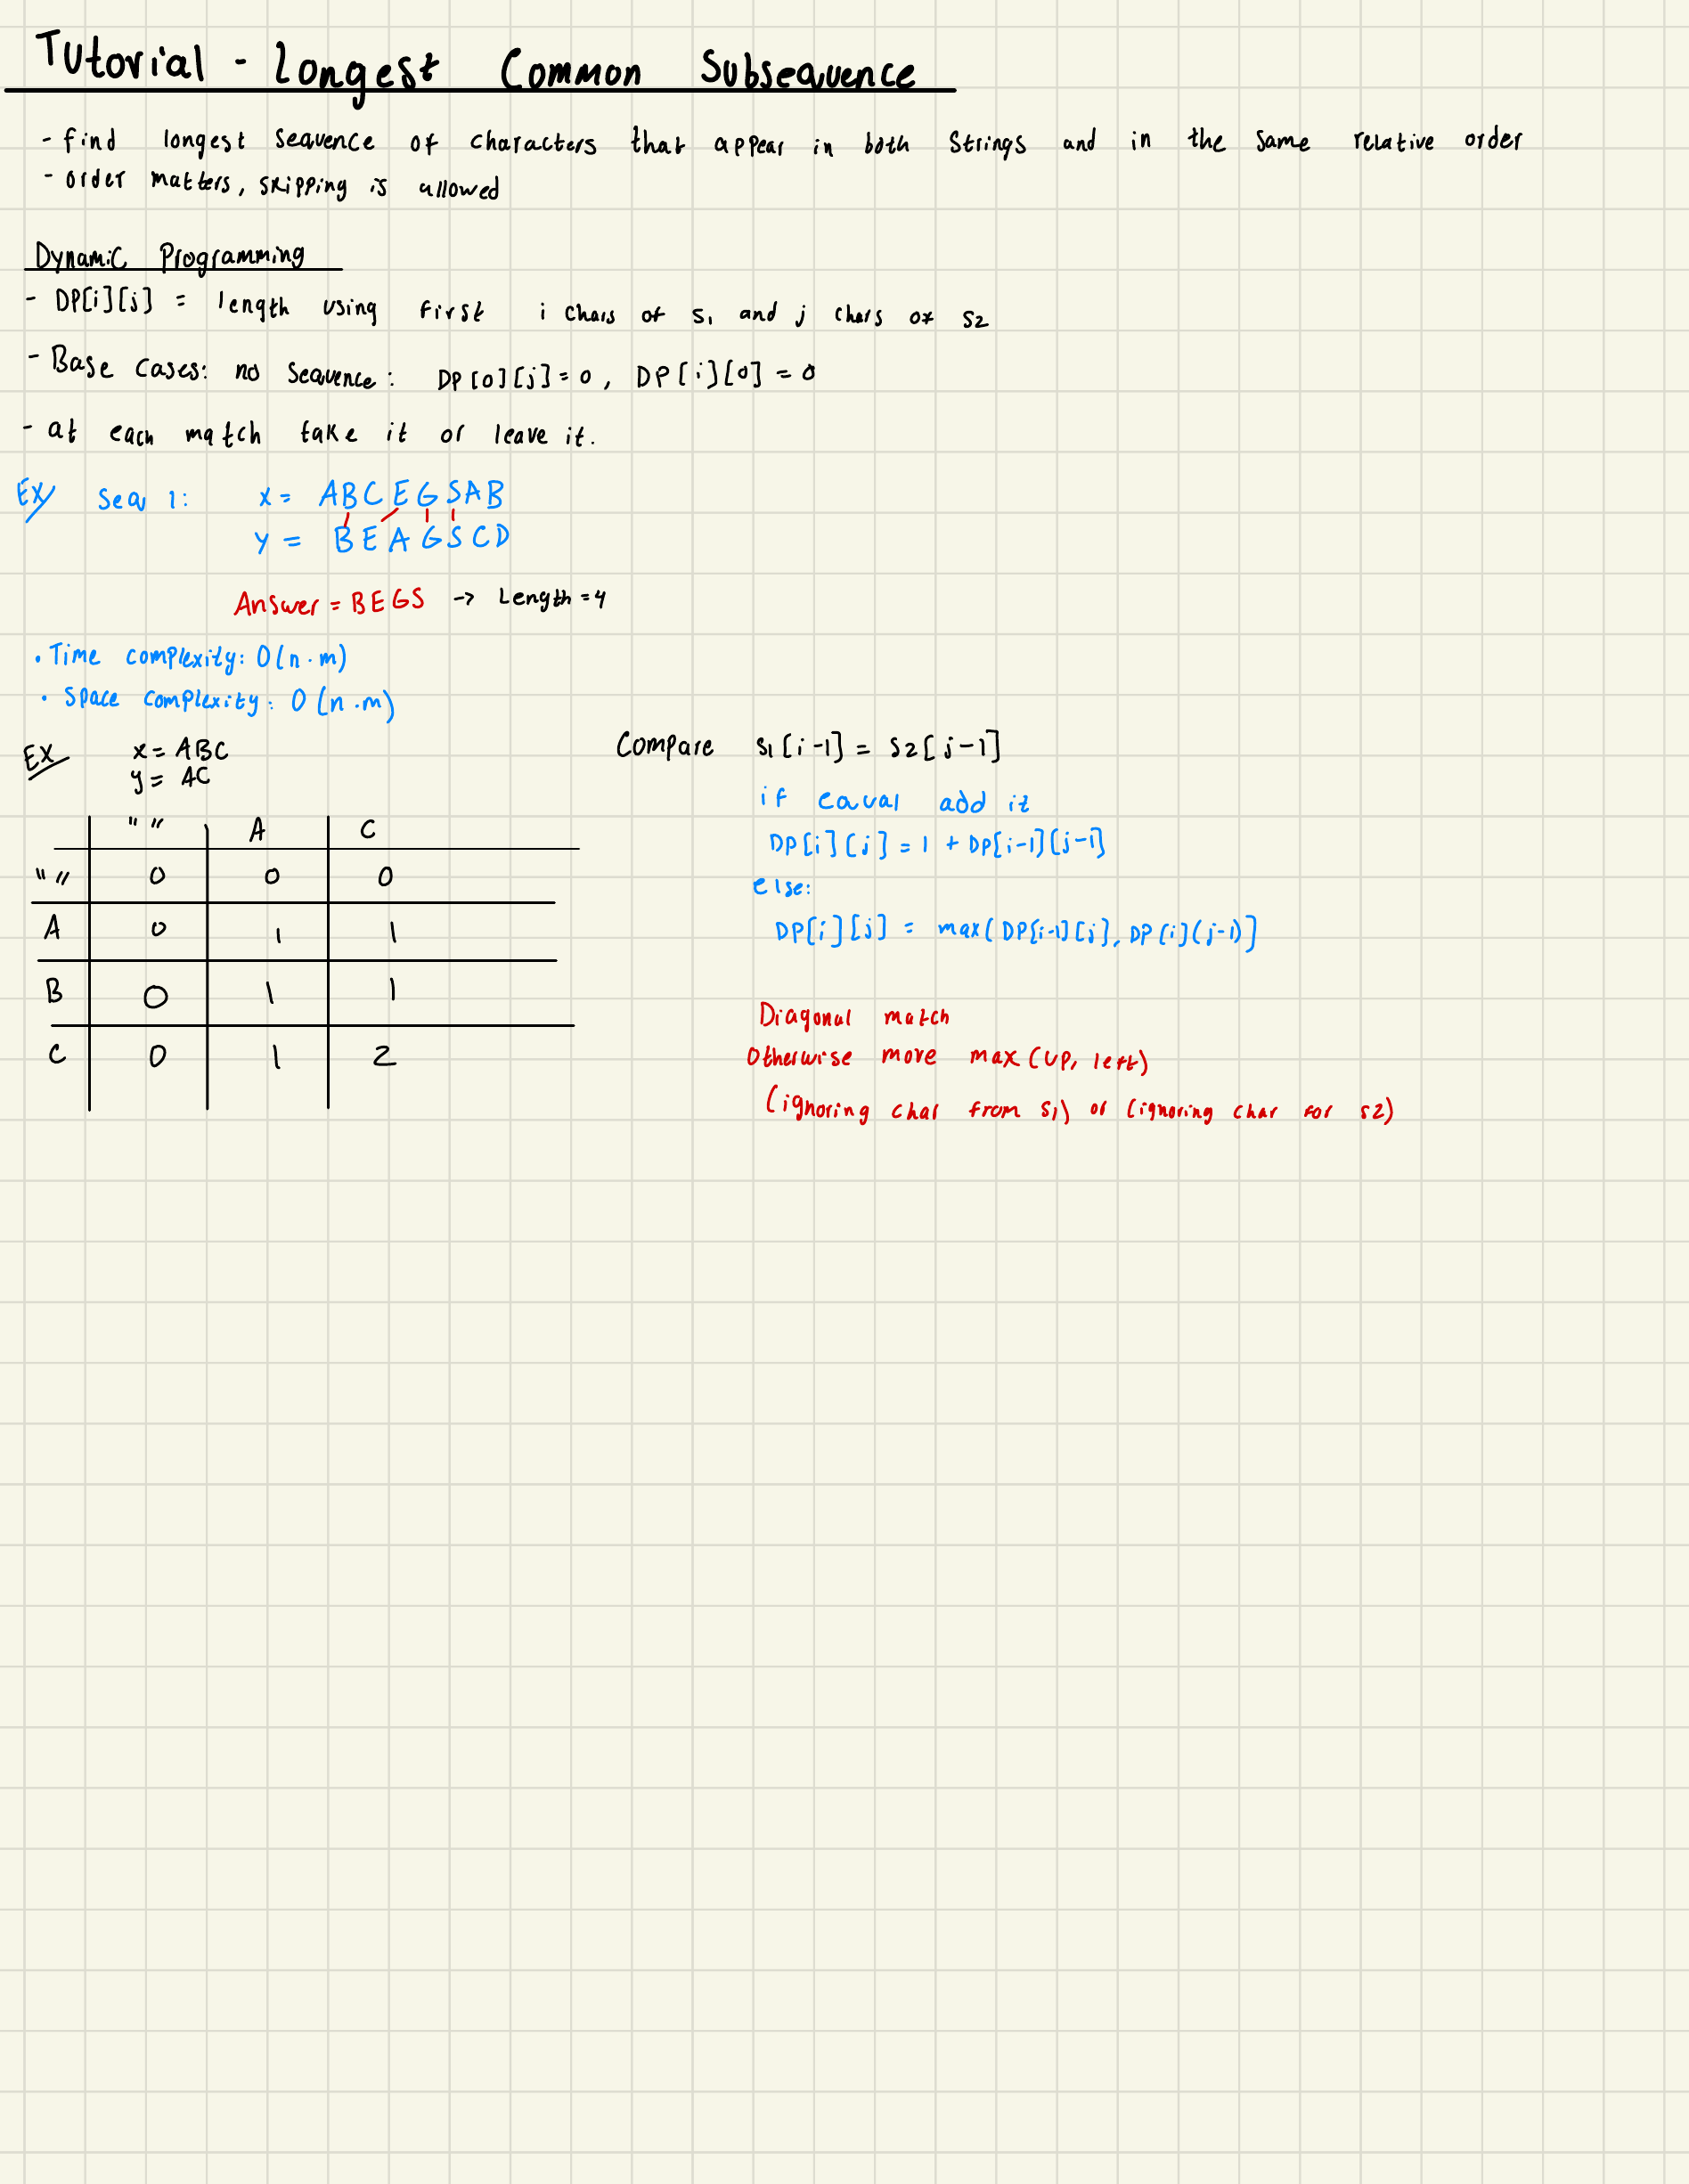 Tutorial - Longest Common Subsequence
- find longest sequence of characters that appear in both strings and in the same relative order
- order matters, skipping is allowed
Dynamic Programming
- DP[i][j] = length using first i chars of s1 and j chars of s2
- Base cases: no sequence: DP[0][j]=0, DP[i][0]=0
- at each match take it or leave it.
EX seq 1: x = ABCEGSAB
y = BEAGSCD
Answer = BEGS -> Length = 4
• Time complexity: O(n·m)
• Space complexity: O(n·m)
EX x = ABC
y = AC
"" A C
"" 0 0 0
A 0 1 1
B 0 1 1
C 0 1 2
Compare s1[i-1] = s2[j-1]
if equal add it
DP[i][j] = 1 + DP[i-1][j-1]
else:
DP[i][j] = max(DP[i-1][j], DP[i][j-1)]
Diagonal match
Otherwise move max(up, left)
(ignoring char from s1) or (ignoring char for s2)